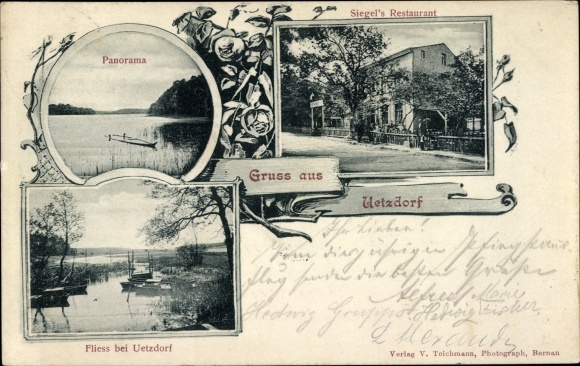 Siegel's Restaurant
Panorama
Gruss aus
Uetzdorf
Ihr Lieben!
Vom diesjährigen Pfingstaus-
flug senden die besten Grüße
Alfred Marie
Hedwig Hedwig
Fliess bei Uetzdorf
Verlag V. Teichmann, Photograph, Bernau